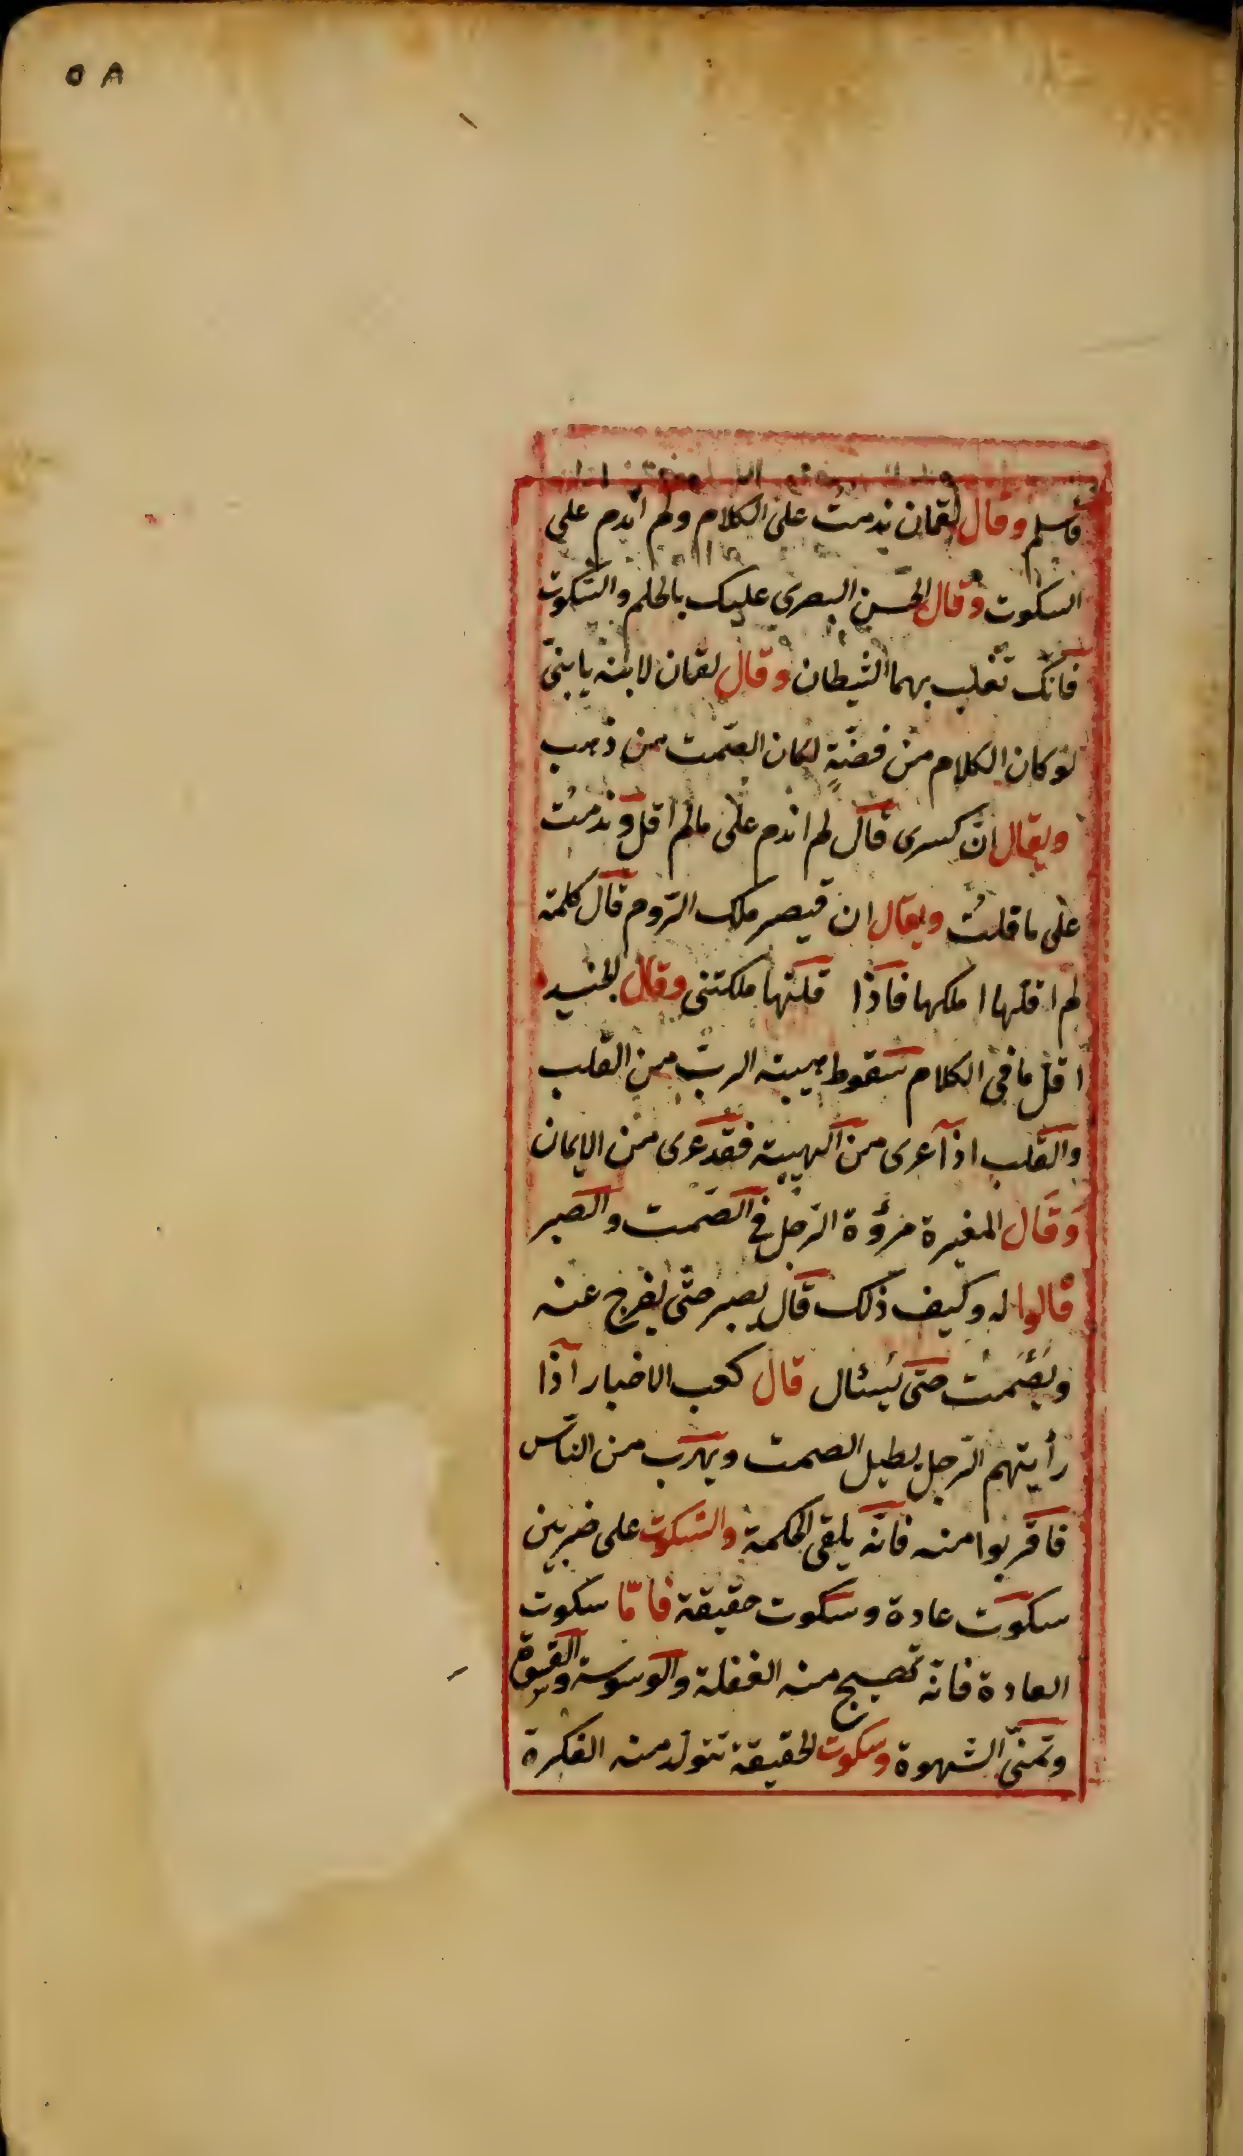 ٥٨
فاسلم وقال لقمان ندمت على الكلام ولم اندم على
السكوت وقال الحسن البصرى عليك بالحلم والسّكوت
فانّك تغلب بهما الشيطان وقال لقمان لابنه يا بنىّ
لو كان الكلام من فضّةٍ لكان الصّمت من ذهب
ويقال انّ كسرى قال لم اندم على مالم اقل وندمت
على ما قلت ويقال ان قيصر ملك الرّوم قال كلمة
لم اقلها املكها فاذا قلتها ملكتنى وقال الجنيد
اقل ما فى الكلام سقوط هيبة الربّ من القلب
والقلب اذا عرى من الهيبة فقد عرى من الايمان
وَقَال المغيرة مرؤة الرّجل فى الصّمت والصبر
قالوا له وكيف ذلك قال يصبر حتّى يفرج عنه
ويَصْمت حتى يسئال قال كعب الاخبار اذا
رأيتهم الرّجل يطيل الصمت ويهرب من النّاس
فاقربوا منه فانّه يلقى الحكمة والسّكوت على ضربين
سكوت عادة وسكوت حقيقة فامّا سكوت
العادة فانّه تصبح منه الغفلة والوسوسة والقسوة
وتمنّى الشهوة وسكوت الحقيقة تتولّد منه الفكرة